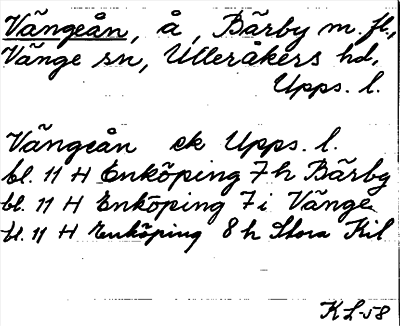 Vängeån, å, Bärby m. fl.,
Vänge sn, Ulleråkers hd,
Upps. l.
Vängeån ek Upps. l.
bl. 11 H Enköping 7 h Bärby
bl. 11 H Enköping 7 i Vänge
bl. 11 H Enköping 8 h Stora Kil
KL-58